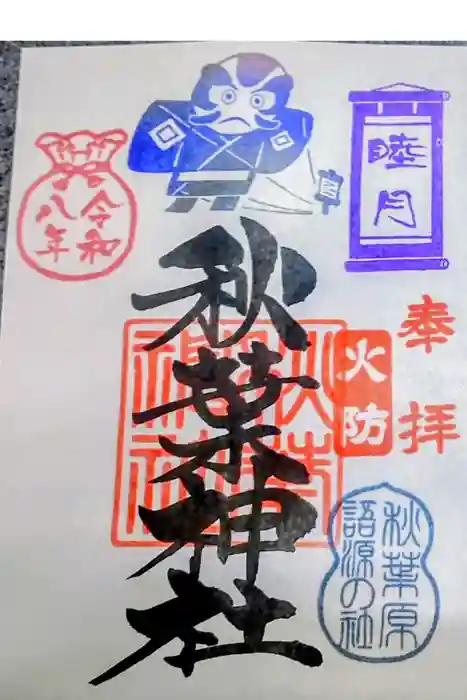 睦月
奉拝
火防
秋葉原
語源の社
秋葉神社
秋葉神社
令和
八年